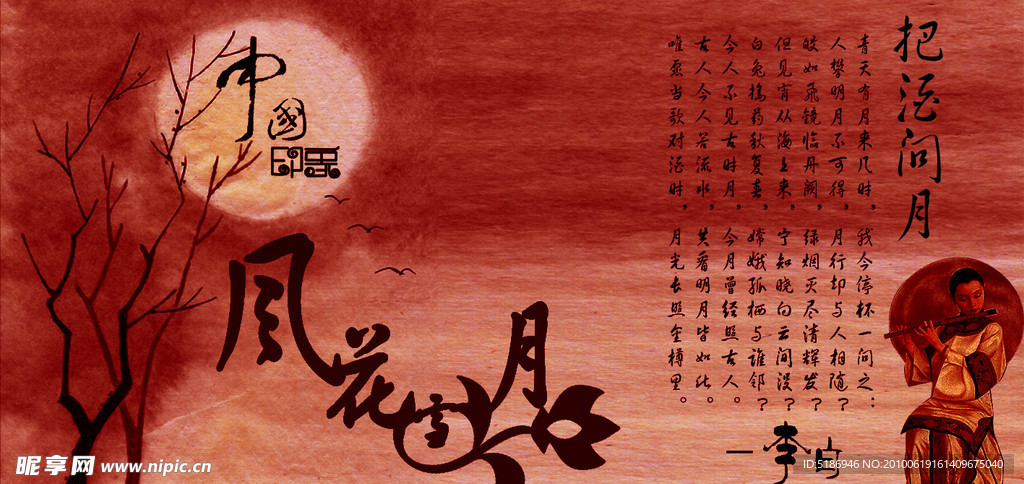 中國
印象
风花雪月
把酒问月
青天有月来几时，我今停杯一问之：
人攀明月不可得，月行却与人相随？
皎如飞镜临丹阙，绿烟灭尽清辉发？
但见宵从海上来，宁知晓向云间没？
白兔捣药秋复春，嫦娥孤栖与谁邻？
今人不见古时月，今月曾经照古人。
古人今人若流水，共看明月皆如此。
唯愿当歌对酒时，月光长照金樽里。
—李白
昵享网 www.nipic.cn
ID:5186946 NO:20100619161409675040